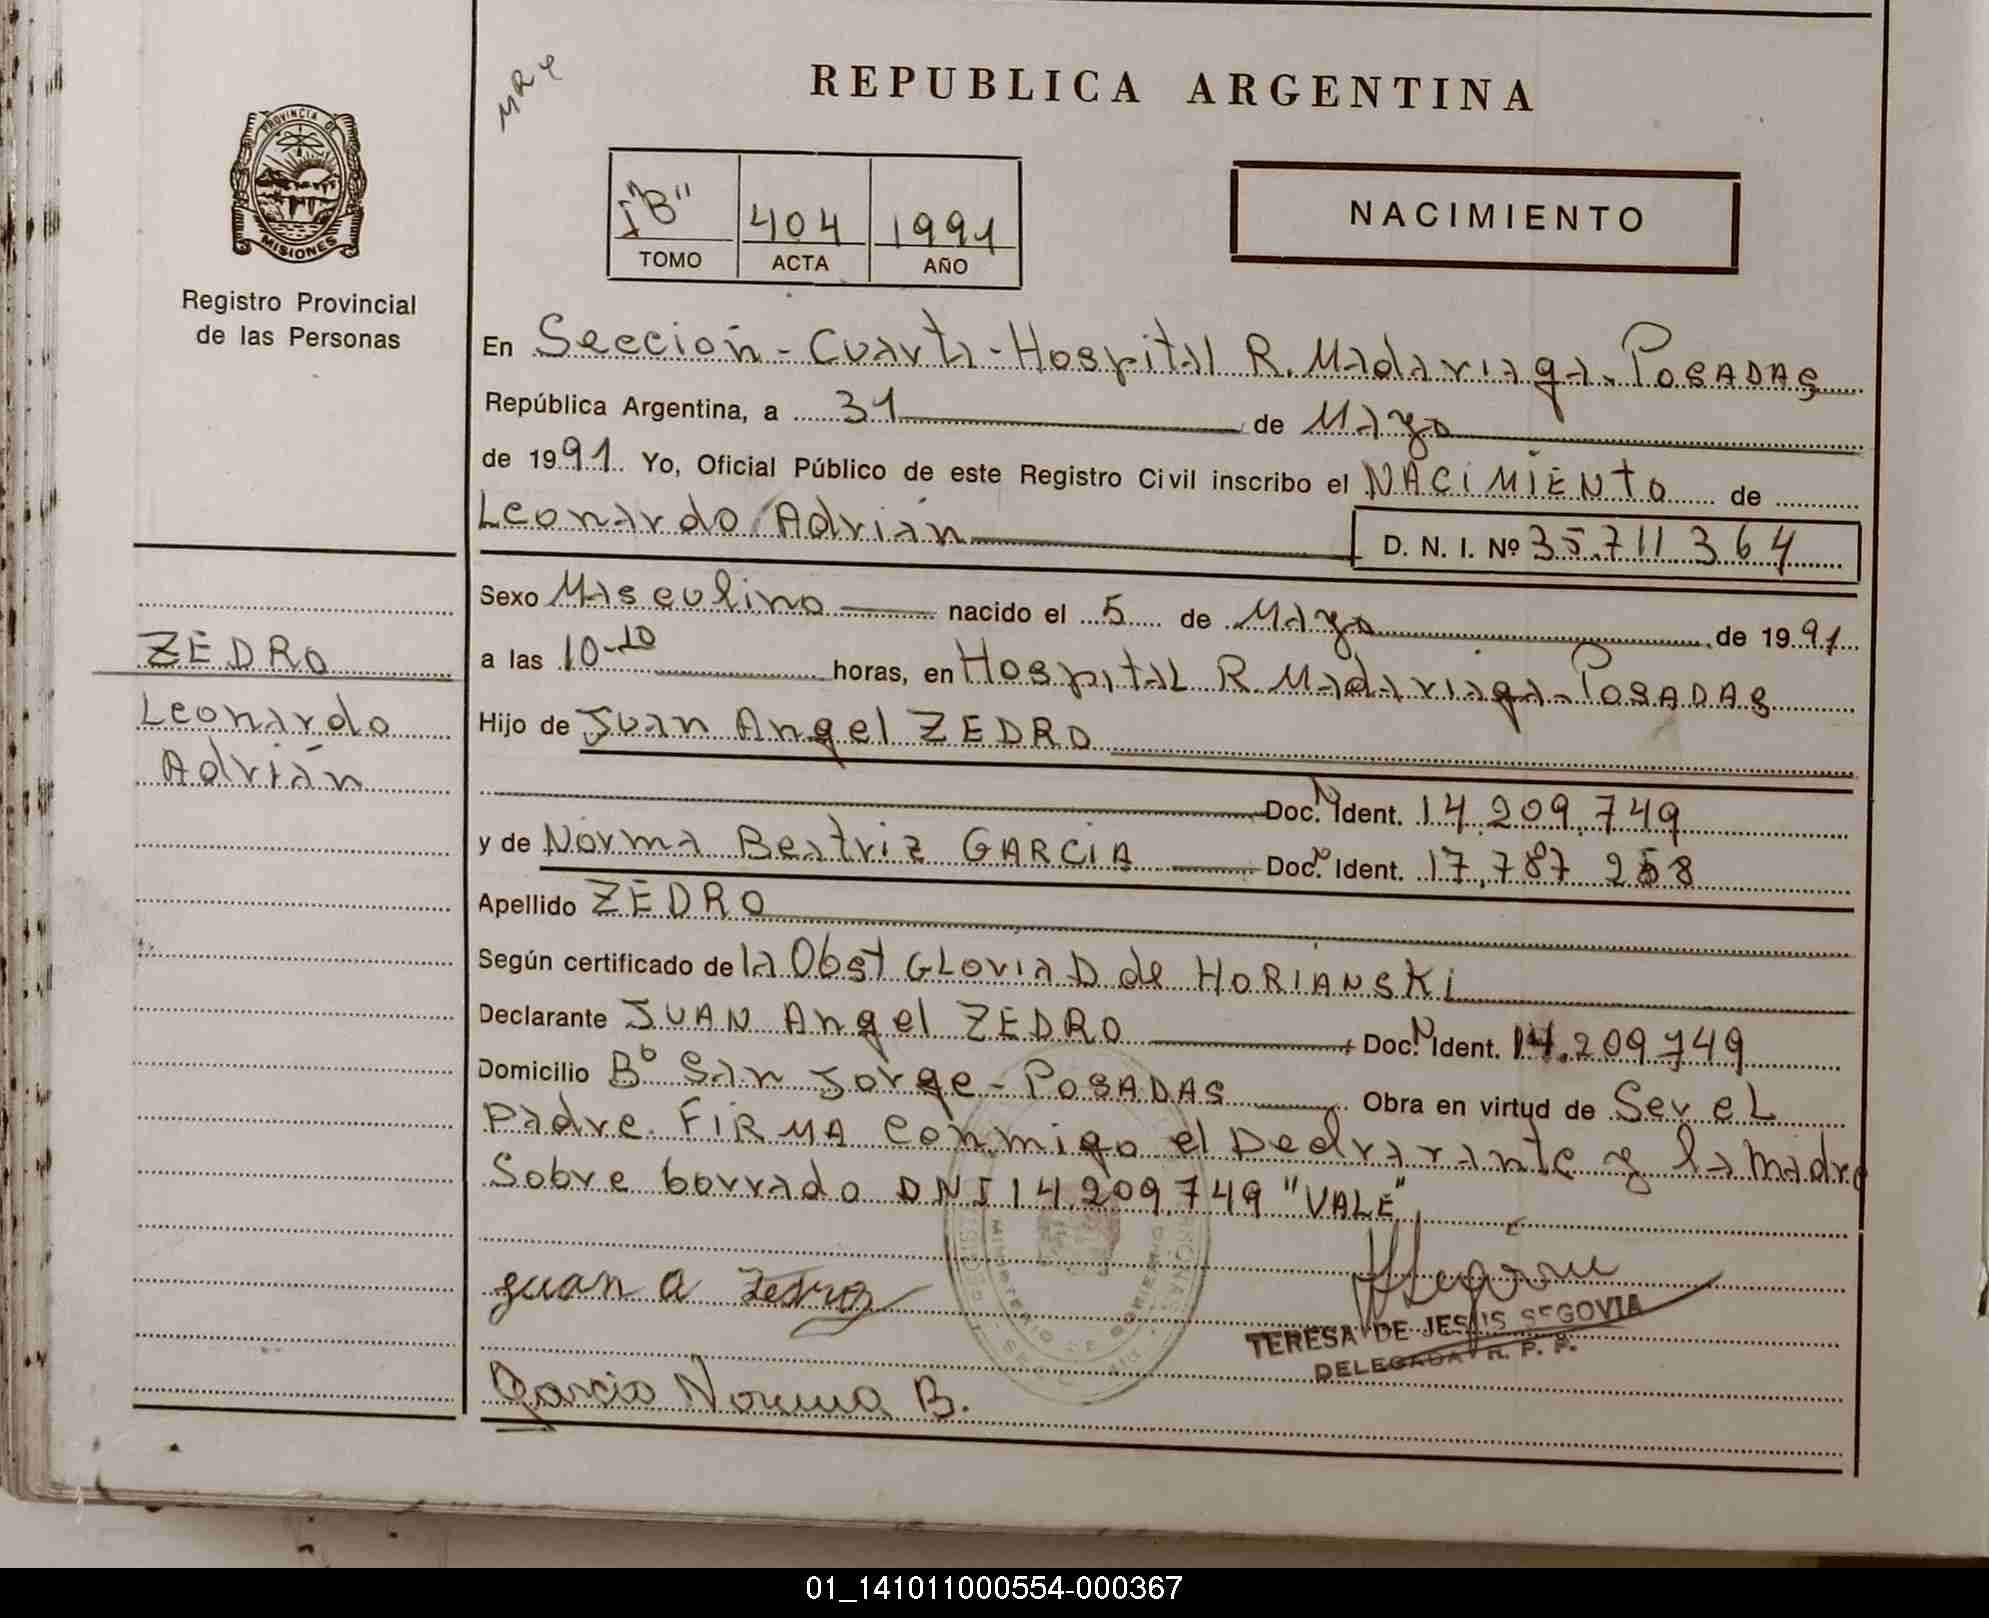 MRY
REPUBLICA ARGENTINA
PROVINCIA DE
MISIONES
Registro Provincial
de las Personas
I "B" 404 1991
TOMO ACTA AÑO
NACIMIENTO
En Sección - Cuarta - Hospital R. Madariaga - POSADAS
República Argentina, a 31 de Mayo
de 1991. Yo, Oficial Público de este Registro Civil inscribo el NACIMIENTO de
Leonardo Adrián
D. N. I. Nº 35.711 364
Sexo Masculino nacido el 5 de Mayo de 1991
a las 10-10 horas, en Hospital R. Madariaga - POSADAS
Hijo de Juan Angel ZEDRO
Doc. N Ident. 14.209.749
y de Norma Beatriz GARCIA Doc. Ident. 17.787 258
Apellido ZEDRO
Según certificado de la Obst GLoria D de HORIANSKi
Declarante JUAN Angel ZEDRO Doc. N Ident. 14.209 749
Domicilio Bº San Jorge - POSADAS Obra en virtud de Ser eL
padre. FIRMA conmigo el Declrarante y la madre
Sobre borrado DNI 14.209.749 "VALE"
ZEDRO
Leonardo
Adrián
Juan A Zedro
TERESA DE JESUS SEGOVIA
DELEGADA R. P. P.
Garcia Norma B.
01_141011000554-000367